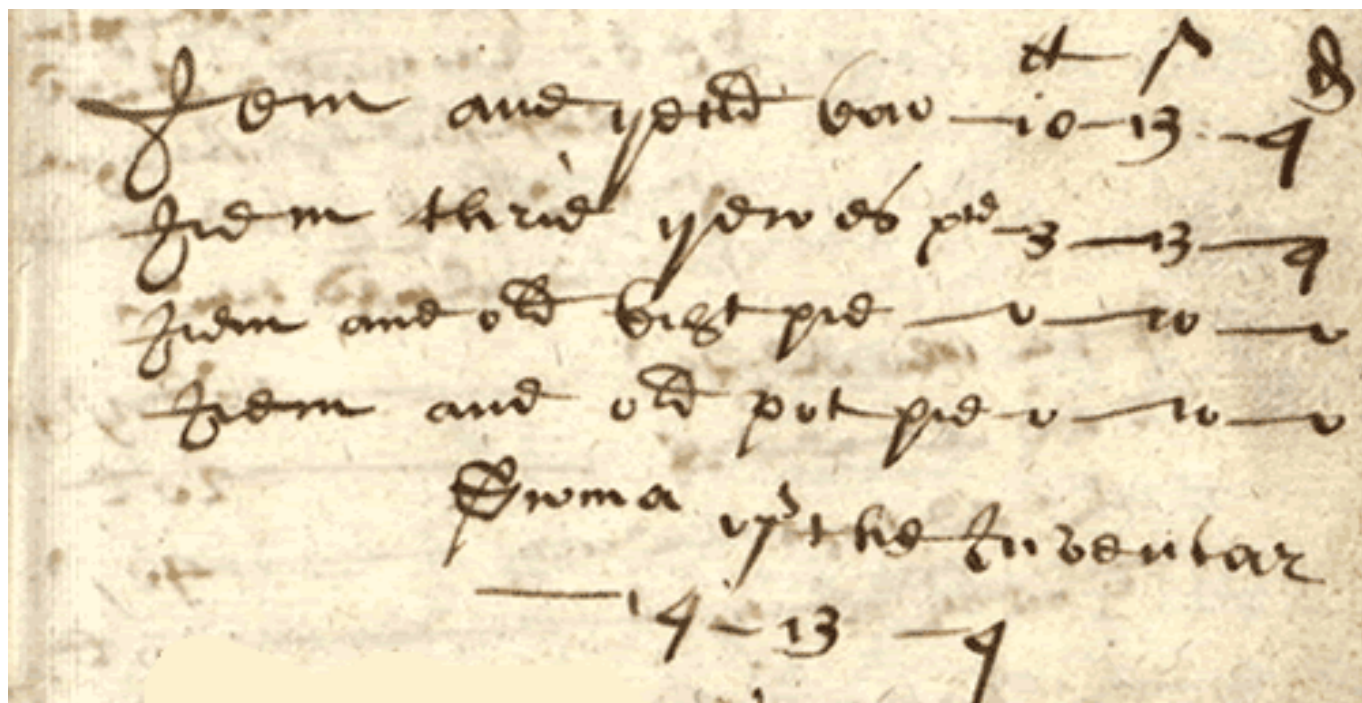 s d
Item ane yeld kow — 10 — 13 — 4
Item thrie yewes prce — 3 — 13 — 4
Item ane old kist pre — 0 — 10 — 0
Item ane old pot pre 0 — 10 — 0
Summa of the Inventar
— 14 — 13 — 4